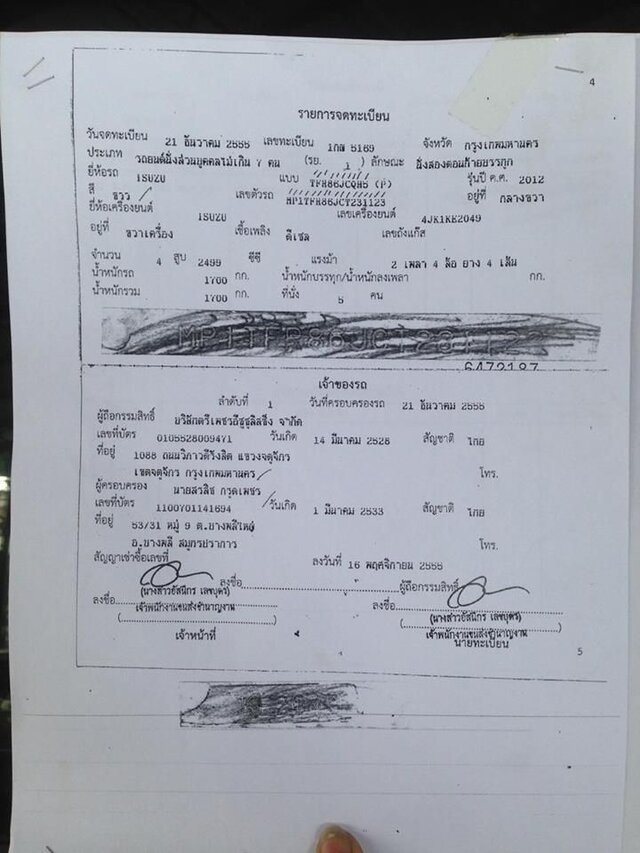 4
รายการจดทะเบียน
วันจดทะเบียน 21 ธันวาคม 2555 เลขทะเบียน 1กส 5169 จังหวัด กรุงเทพมหานคร
ประเภท รถยนต์นั่งส่วนบุคคลไม่เกิน 7 คน (รย. 1 ) ลักษณะ นั่งสองตอนท้ายบรรทุก
ยี่ห้อรถ ISUZU แบบ TFR86JCQH5 (P) รุ่นปี ค.ศ. 2012
สี ขาว เลขตัวรถ MP1TFR86JCT231123 อยู่ที่ กลางขวา
ยี่ห้อเครื่องยนต์ ISUZU เลขเครื่องยนต์ 4JK1KE2049
อยู่ที่ ขวาเครื่อง เชื้อเพลิง ดีเซล เลขถังแก๊ส
จำนวน 4 สูบ 2499 ซีซี แรงม้า 2 เพลา 4 ล้อ ยาง 4 เส้น
น้ำหนักรถ 1700 กก. น้ำหนักบรรทุก/น้ำหนักลงเพลา กก.
น้ำหนักรวม 1700 กก. ที่นั่ง 5 คน
6472187
เจ้าของรถ
ลำดับที่ 1 วันที่ครอบครองรถ 21 ธันวาคม 2555
ผู้ถือกรรมสิทธิ์ บริษัทตรีเพชรอีซูซุลิสซิ่ง จำกัด
เลขที่บัตร 0105528009471 วันเกิด 14 มีนาคม 2528 สัญชาติ ไทย
ที่อยู่ 1088 ถนนวิภาวดีรังสิต แขวงจตุจักร
เขตจตุจักร กรุงเทพมหานคร โทร.
ผู้ครอบครอง นายสรสิช กรุดเพชร
เลขที่บัตร 1100701141694 วันเกิด 1 มีนาคม 2533 สัญชาติ ไทย
ที่อยู่ 53/31 หมู่ 9 ต.บางพลีใหญ่
อ.บางพลี สมุทรปราการ โทร.
สัญญาเช่าซื้อเลขที่ ลงวันที่ 16 พฤศจิกายน 2555
ลงชื่อ ผู้ถือกรรมสิทธิ์
(นางสาวอัสนิกร เลขบุตร) (นางสาวอัสนิกร เลขบุตร)
ลงชื่อ เจ้าพนักงานขนส่งชำนาญงาน ลงชื่อ เจ้าพนักงานขนส่งชำนาญงาน
เจ้าหน้าที่ นายทะเบียน
5